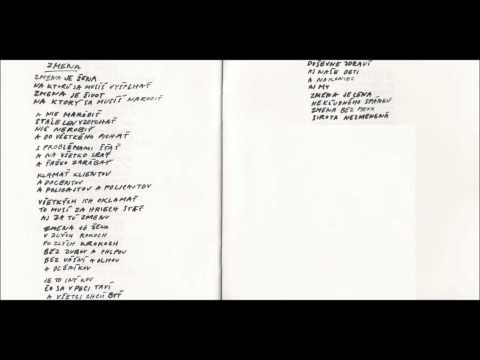 ZMENA
ZMENA JE ŽENA
NA KTORÚ SA MUSÍŠ VYŠPLHAŤ
ZMENA JE ŽIVOT
NA KTORÝ SA MUSÍŠ NARODIŤ
A NIE MARÓDIŤ
STÁLE LEN VZDYCHAŤ
NIČ NEROBIŤ
A DO VŠETKÉHO PICHAŤ
S PROBLÉMAMI ŠŤAŤ
A NA VŠETKO SRAŤ
A ŤAŽKO ZARÁBAŤ
KLAMAŤ KLIENTOV
A DOCENTOV
A POLICAJTOV A POLICAJTOV
VŠETKÝCH ICH OKLAMAŤ
TO MUSÍ ZA HRIECH STÁŤ
AJ ZA TÚ ZMENU
ZMENA JE ŽENA
V ZLÝCH ROKOCH
PO ZLÝCH KROKOCH
BEZ ZUBOV A CHLPOV
BEZ VÁŠNÍ A DLHOV
A DLŽNÍKOV
JE TO
ČO SA V PECI TAVÍ
A VŠETCI CHCÚ BYŤ
DUŠEVNE ZDRAVÍ
AJ NAŠE DETI
A NAKONIEC
AJ MY
ZMENA JE CENA
NEKĽUDNÉHO SPÁNKU
ZMENA BEZ
SIROTA NEZMENENÁ